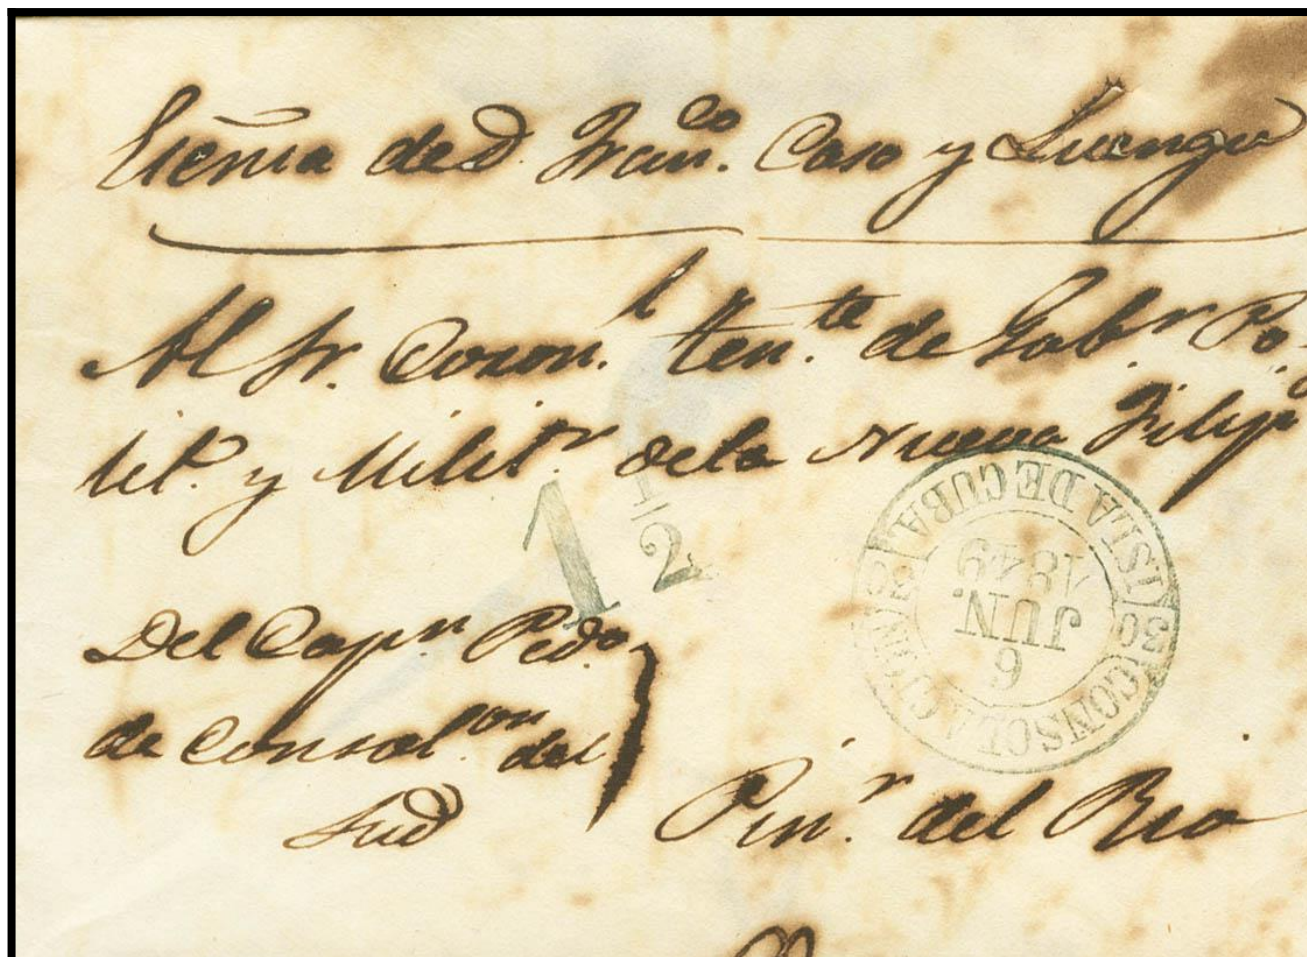 de D. Fran.co Caso y Luengo
Al Sr. Coron.l ten.te de Gob.r Po-
lit.o y Milit.r de la Nueva Filip.
1 1/2
ISLA DE CUBA
CONSOLACION
6
JUN.
1849
Del Cap.n Ped.o
de Consol.on del
Sud
Pin.r del Rio